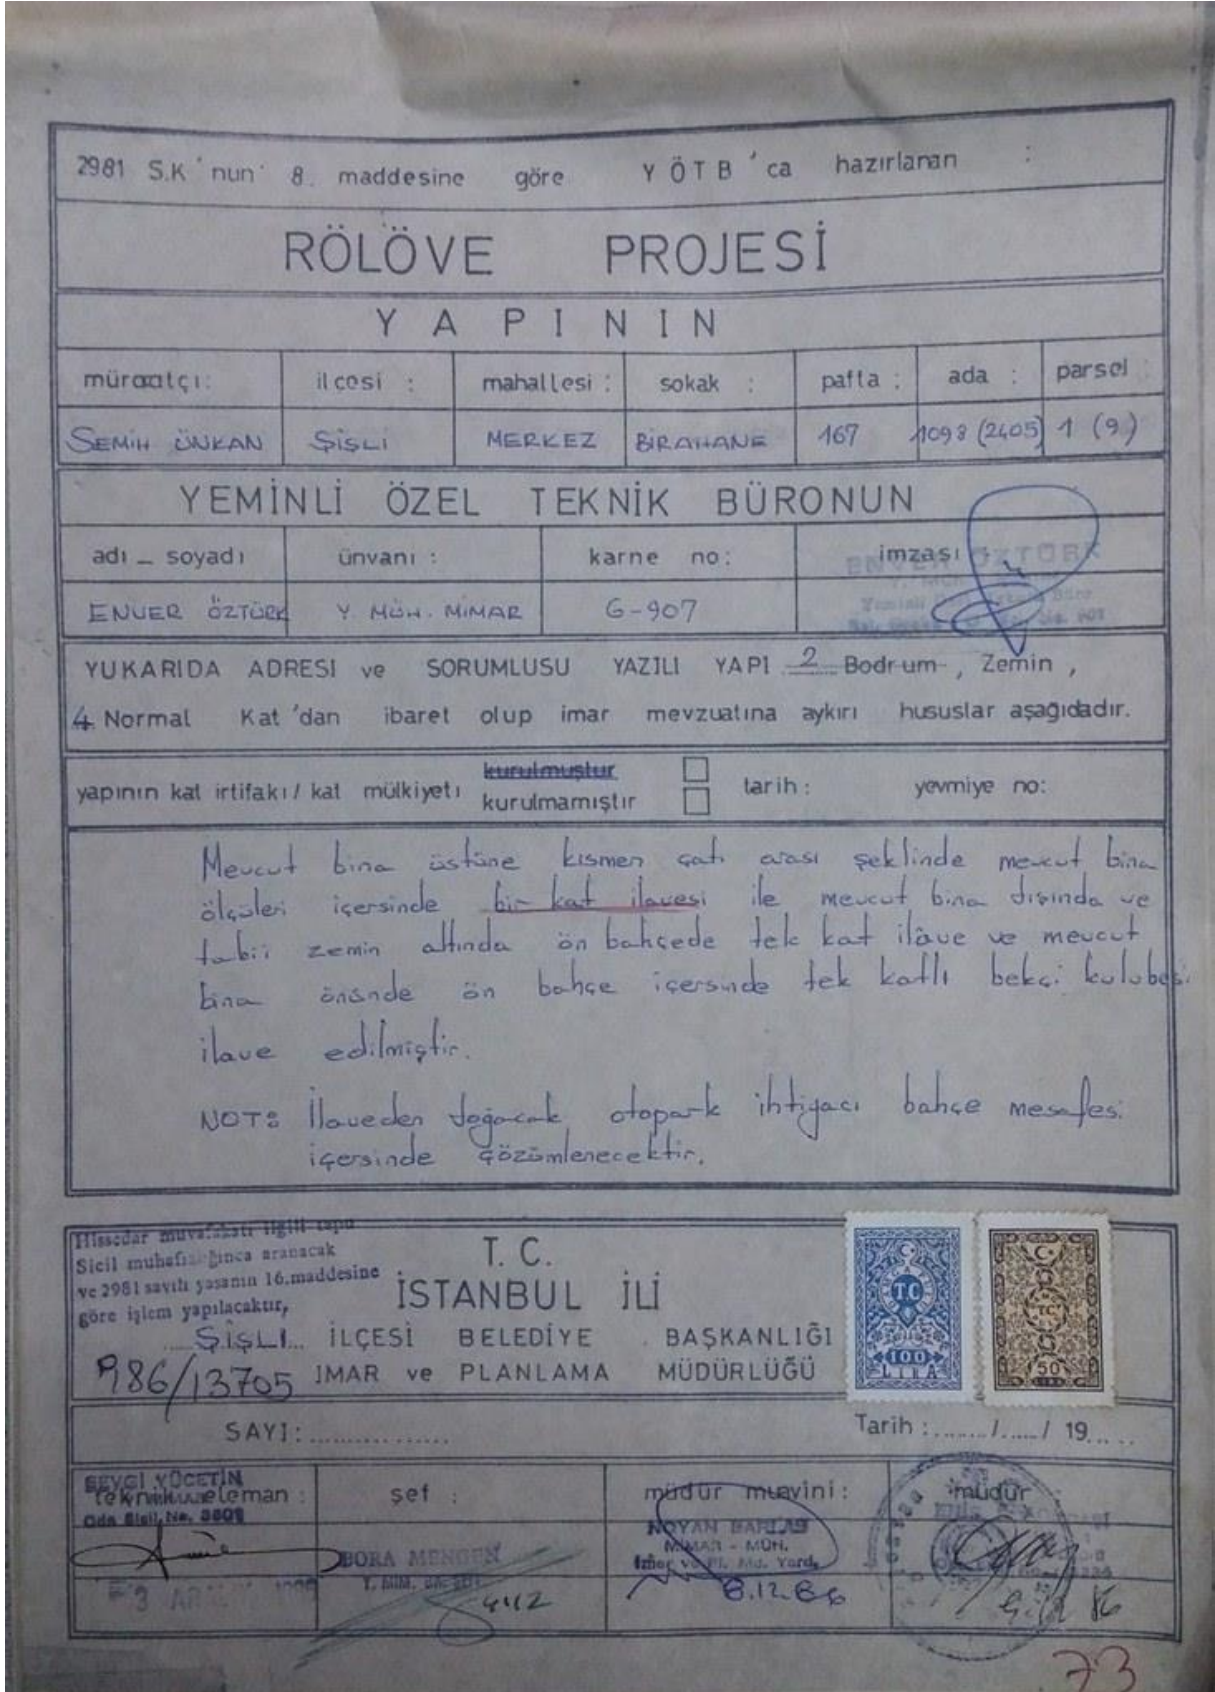 2981 S.K'nun 8. maddesine göre YÖTB'ca hazırlanan :
RÖLÖVE PROJESİ
YAPININ
müraatçı: ilçesi : mahallesi : sokak : pafta : ada : parsel :
SEMİH ÜNKAN ŞİŞLİ MERKEZ BİRAHANE 167 1093 (2405) 1 (9)
YEMİNLİ ÖZEL TEKNİK BÜRONUN
adı _ soyadı ünvanı : karne no: imzası
ENVER ÖZTÜRK
ENVER ÖZTÜRK Y. MÜH. MİMAR G-907
YUKARIDA ADRESI ve SORUMLUSU YAZILI YAPI 2 Bodrum , Zemin ,
4 Normal Kat'dan ibaret olup imar mevzuatına aykırı hususlar aşağıdadır.
yapının kat irtifakı / kat mülkiyeti kurulmuştur tarih : yevmiye no:
kurulmamıştır
Mevcut bina üstüne kısmen çatı arası şeklinde mevcut bina
ölçüleri içersinde bir kat ilavesi ile mevcut bina dışında ve
tabii zemin altında ön bahçede tek kat ilâve ve mevcut
bina önünde ön bahçe içersinde tek katlı bekçi kulubesi
ilave edilmiştir.
NOT: İlaveden doğacak otopark ihtiyacı bahçe mesafesi
içersinde çözümlenecektir.
Hissedar muvafakatı ilgili tapu
Sicil muhafızlığınca aranacak
ve 2981 sayılı yasanın 16.maddesine
göre işlem yapılacaktır,
T. C.
İSTANBUL İLİ
ŞİŞLİ İLÇESİ BELEDİYE BAŞKANLIĞI
986/13705 IMAR ve PLANLAMA MÜDÜRLÜĞÜ
100 LIRA
TC
50 LIRA
SAYI:.................. Tarih : ......./...../ 19.....
SEVGİ YÜCETİN
teknik eleman : şef : müdür muavini : müdür
Oda Sicil No.
NOYAN BARLAS
MİMAR - MÜH.
İmar ve Pl. Md. Yard.
BORA MENGEN
8.12.86
73